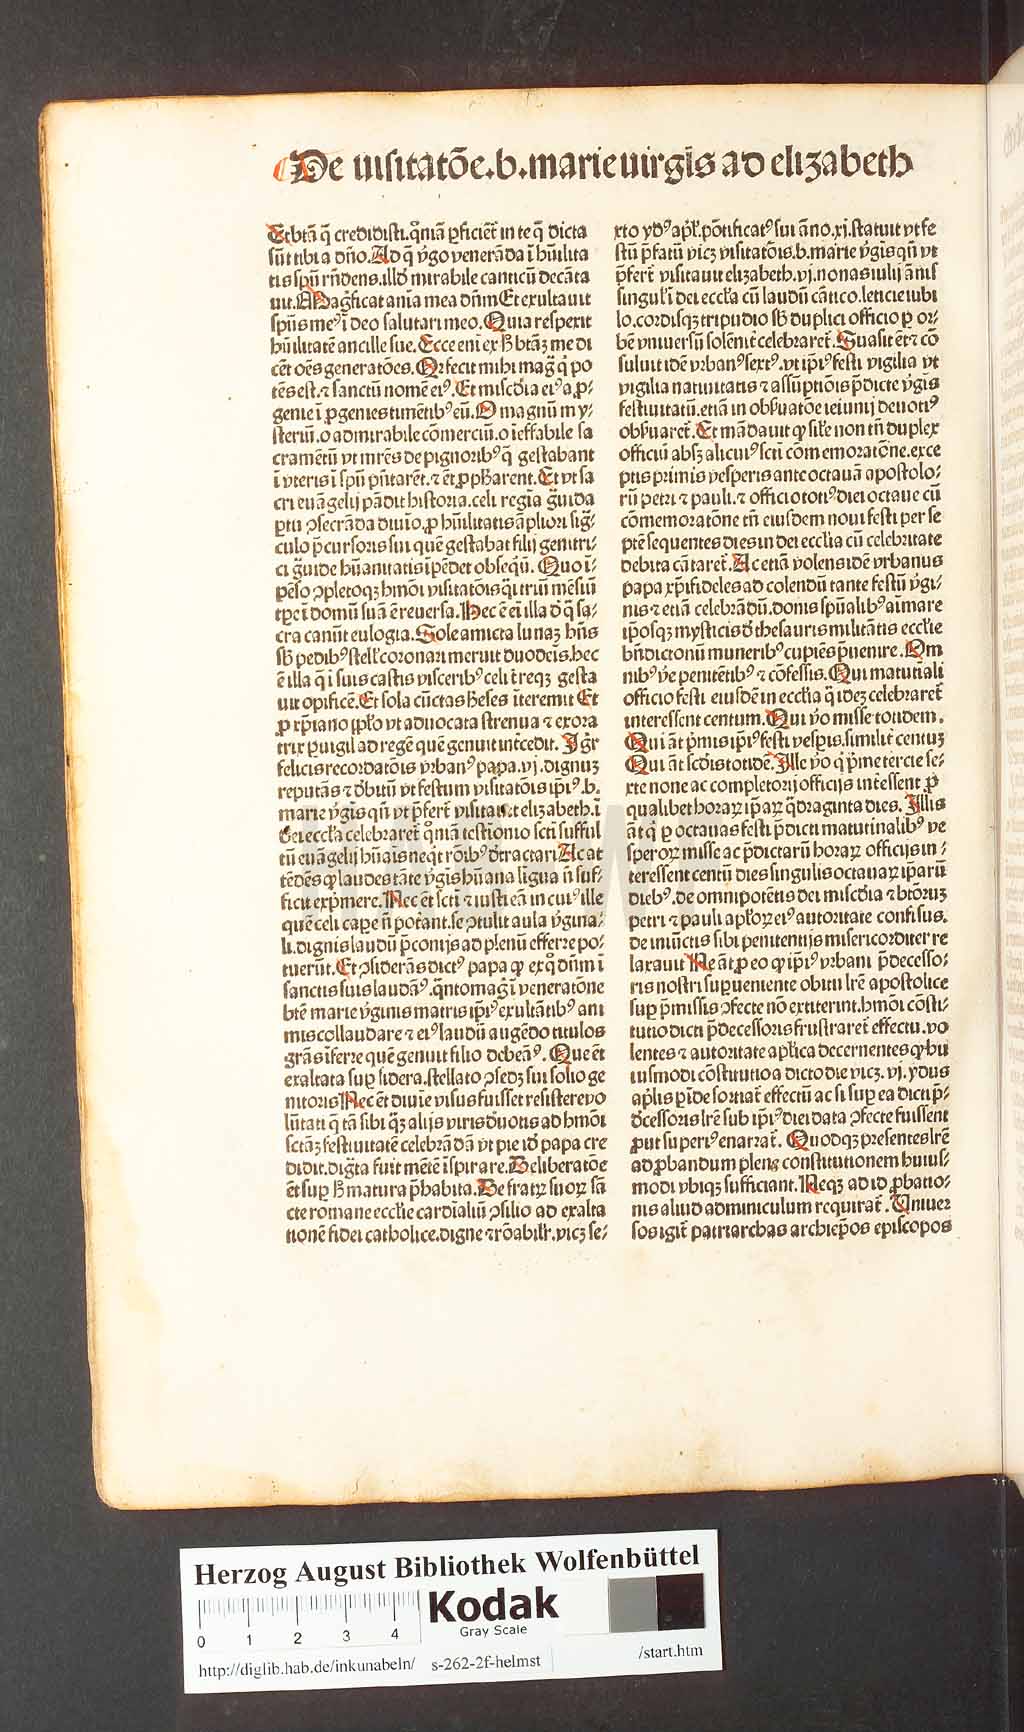 De uisitatōe.b.marie uirgīs ad elizabeth
Et btā q̄ credidisti.qm̄iā ꝑficiēt in te q̄ dicta
sūt tibi a dn̄o.Ad q̄ ṽgo venerāda ī hūilita
tis spū rn̄dens.illd mirabile canticū decāta
uit.Magn̄ficat anīa mea dn̄m Et exultauit
spūs meꝰ ī deo salutari meo.Quia respexit
hūilitatē ancille sue.Ecce enī ex h̄ btāꝫ me di
cēt oēs generatōes.Qr fecit mihi mag̃ q̇ po
tēs est.⁊ sanctū nomē eiꝰ.Et mīscdīa eiꝰ a ꝓ⸗
genie ī ꝓgenies timētibꝰ eū.O magnū my⸗
steriū.o admirabile cōmerciū.o īeffabile sa
cramētū vt mrēs de pignoribꝰ q̄ gestabant
ī vteris ī spū pn̄tarēt.⁊ ēt ꝓpharent.Et vt sa
cri euāgelij pādit historia.celi regīa g̃uida
ptu ↄsecrāda diuīo.ꝓ hūilitatis āpliori sig̃⸗
culo p̄cursoris sui quē gestabat filij genitri⸗
ci g̃uide hūanitatis īpēdet obseqū.Quo i⸗
pēso ↄpletoqꝫ hmōi visitatōis q̇ī triū mēsiū
tꝑe ī domū suā ē reuersa.Hec ē eī illa d̄ q̄ sa⸗
cra canūt eulogia.Sole amicta lunaꝫ hn̄s
sb̄ pedibꝰ stell' coronari meruit duodeīs.hec
ē illa q̄ ī suis castis visceribꝰ celi t̄reqꝫ gesta
uit opificē.Et sola cūctas h̄eses īteremit Et
ꝓ xp̄iano ppl'o vt aduocata strenua ⁊ exora
trix ꝑuigil ad regē quē genuit int̄cedit.Igr̄
felicis recordatōis vrbanꝰ papa.vj.dignuꝫ
reputās ⁊ d̄bitū vt festum visitatōis ip̄iꝰ.b.
marie ṽgis qn̄ vt p̄fert̄ visitauit elizabeth.ī
dei eccl'ia celebraret̄ qm̄iā testīonio scti sufful
tū euāgelij hūais neqt rōibꝰ dtractari Ac at
tēdēs qꝙ laudes tāte ṽgis hūana līgua n̄ suf⸗
ficit exp̄mere.Nec ēt scti ⁊ iusti eā in cuiꝰ ille
quē celi cape n̄ poterant.se ↄtulit aula ṽgina⸗
li.dignis laudū p̄conijs ad plenū efferre po⸗
tuerūt.Et ↄsiderās dictꝰ papa qꝙ ex quo dn̄m ī
sanctis suis laudāꝰ.q̄ntomagī ī veneratōne
btē marie ṽginis matris ip̄iꝰ exultātibꝰ ani
mis collaudare ⁊ eiꝰ laudū augēdo titulos
grās īferre quē genuit filio debeāꝰ.Que ēt
exaltata sup sidera.stellato ↄsedꝫ sui solio ge
nitoris Nec ēt diuīe visus fuisset resistere vo
lūtati q̄ tā sibi q̄ꝫ alijs viris d̄uotis ad hmōi
sctāꝫ festiuitatē celebrādā vt pie id̄ papa cre
didit.digta fuit mētē īspirare.Deliberatōe
ēt sup h̄ matura p̄habita.De fratꝝ suoꝝ sā
cte romane eccl'ie cardīaliū ↄsilio ad exalta
tionē fidei catholice.digne ⁊ rōabilr̄.vicꝫ se⸗
xto ydꝰ apl'.pōtificatꝰ sui āno.xj.statuit vt fe
stū p̄fatū vicꝫ visitatōis.b.marie ṽgis qn̄ vt
p̄fert̄ visitauit elizabeth.vj.nonas iulij ānis
singul'ī dei eccl'ia cū laudū cātico.leticie iubi
lo.cordisqꝫ tripudio sb̄ duplici officio ꝑ or⸗
bē vniuersū solēnit̄ celebraret̄.Suasit ēt ⁊ cō
suluit idē vrbanꝰ sextꝰ.vt ip̄iꝰ festi vigilia vt
vigilia natiuitatis ⁊ assūptiōis p̄dicte ṽgīs
festiuitatū.etiā in obsuatōe ieiunij deuotiꝰ
obsuaret̄.Et mādauit qꝙ sil'e non tn̄ duplex
officiū absꝫ alicuiꝰ scti cōmemoratōne.exce
ptis primis vesperis ante octauā apostolo⸗
rū petri ⁊ pauli.⁊ officio totiꝰ diei octaue cū
cōmemoratōne tn̄ eiusdem noui festi per se
ptē sequentes dies in dei eccl'ia cū celebritate
debita cātaret̄.Ac etiā volens idē vrbanus
papa xp̄ifideles ad colendū tante festū ṽgi⸗
nis ⁊ etiā celebrādū.donis spūalibꝰ aīmare
ip̄osqꝫ mysticis d̄ thesauris militātis eccl'ie
bn̄dictonū muneribꝰ cupiēs p̄uenire.Om
nibꝰ ṽe penitētibꝰ ⁊ cōfessis.Qui matutīali
officio festi eiusdē in eccl'ia q̄ ideꝫ celebraret̄
interessent centum.Qui ṽo misse totidem.
Qui āt p̄mis ip̄iꝰ festi vesꝑis.similit̄ centuꝫ
Qui āt scd̄is totidē.Ille ṽo q̄ p̄me tercie se⸗
xte none ac completorij officijs int̄essent ꝓ
qualibet horaꝝ ip̄aꝝ q̄draginta dies.Illis
āt q̄ ꝑ octauas festi p̄dicti matutinalibꝰ ve
speroꝝ misse ac p̄dictarū horaꝝ officijs in⸗
teressent centū dies singulis octauaꝝ ip̄arū
diebꝰ.de omnipotētis dei mīscdīa ⁊ btōruꝫ
petri ⁊ pauli apl'oꝝ eiꝰ autoritate confisus.
de iniūctis sibi penitentijs misericorditer re
laxauit Ne āt ꝓ eo qꝙ ip̄iꝰ vrbani p̄decesso⸗
ris nostri supueniente obitu lrē apostolice
sup p̄missis ↄfecte nō extiterint.hmōi cōsti⸗
tutio dicti p̄decessoris frustraret̄ effectu.vo
lentes ⁊ autoritate apl'ica decernentes qꝙ hu
iusmodi cōstitutio a dicto die vicꝫ.vj.ydus
apl'is p̄ide sortiat̄ effectū ac si sup ea dicti p̄⸗
d̄cessoris lrē sub ip̄iꝰ diei data ↄfecte fuissent
ꝓut superiꝰ enarrat̄.Quodqꝫ presentes lrē
ad ꝓbandum pleng constitutionem huius⸗
modi vbiqꝫ sufficiant.Neqꝫ ad id ꝓbatio⸗
nis aliud adminiculum requirat̄.Uniuer
sos igit̄ patriarchas archiep̄os episcopos
Herzog August Bibliothek Wolfenbüttel
0 1 2 3 4
Kodak
Gray Scale
http://diglib.hab.de/inkunabeln/ s-262-2f-helmst /start.htm